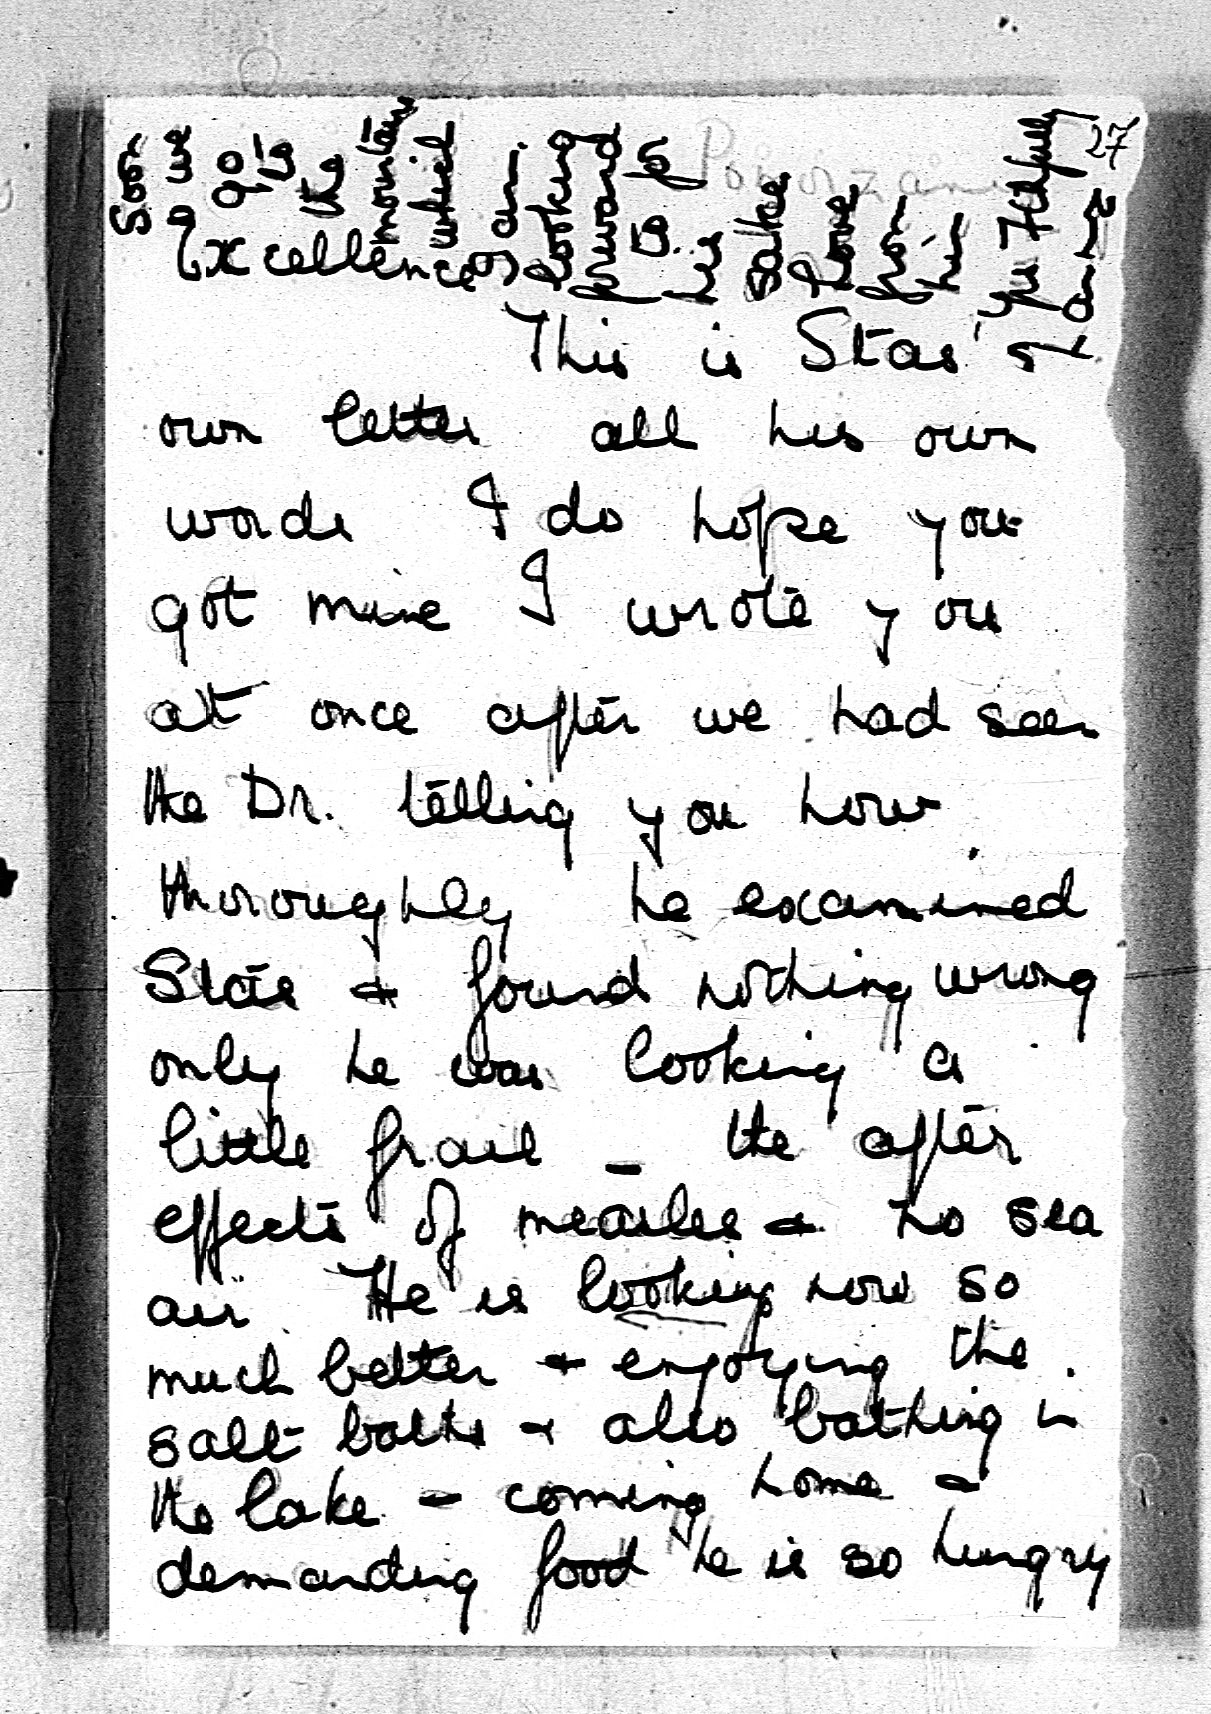 27
Pomorzanie
Excellency
This is Stas's
own letter all his own
words I do hope you
got mine I wrote you
at once after we had seen
the Dr. telling you how
thoroughly he examined
Stas & found nothing wrong
only he was looking a
little frail - the after
effects of measles & no sea
air. He is looking now so
much better & enjoying the
salt baths & also bathing in
the lake - coming home &
demanding food he is so hungry
Soon
we
go
the
mountains
which
am
looking
forward
to
sake
& love
faithfully